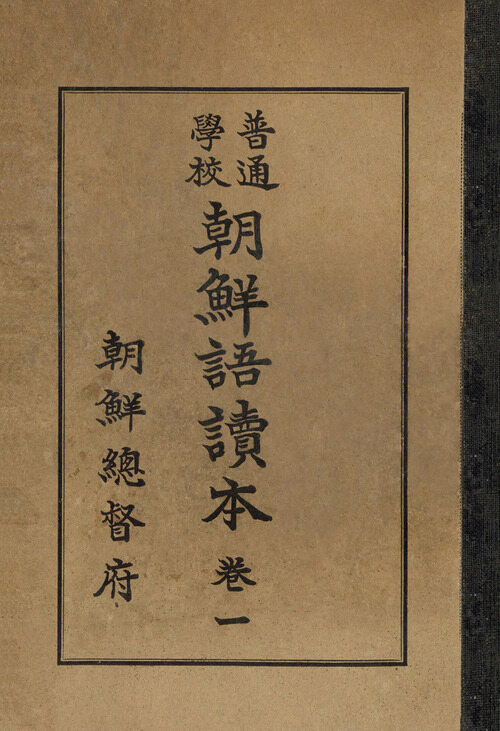 普通學校
朝鮮語讀本 卷一
朝鮮總督府